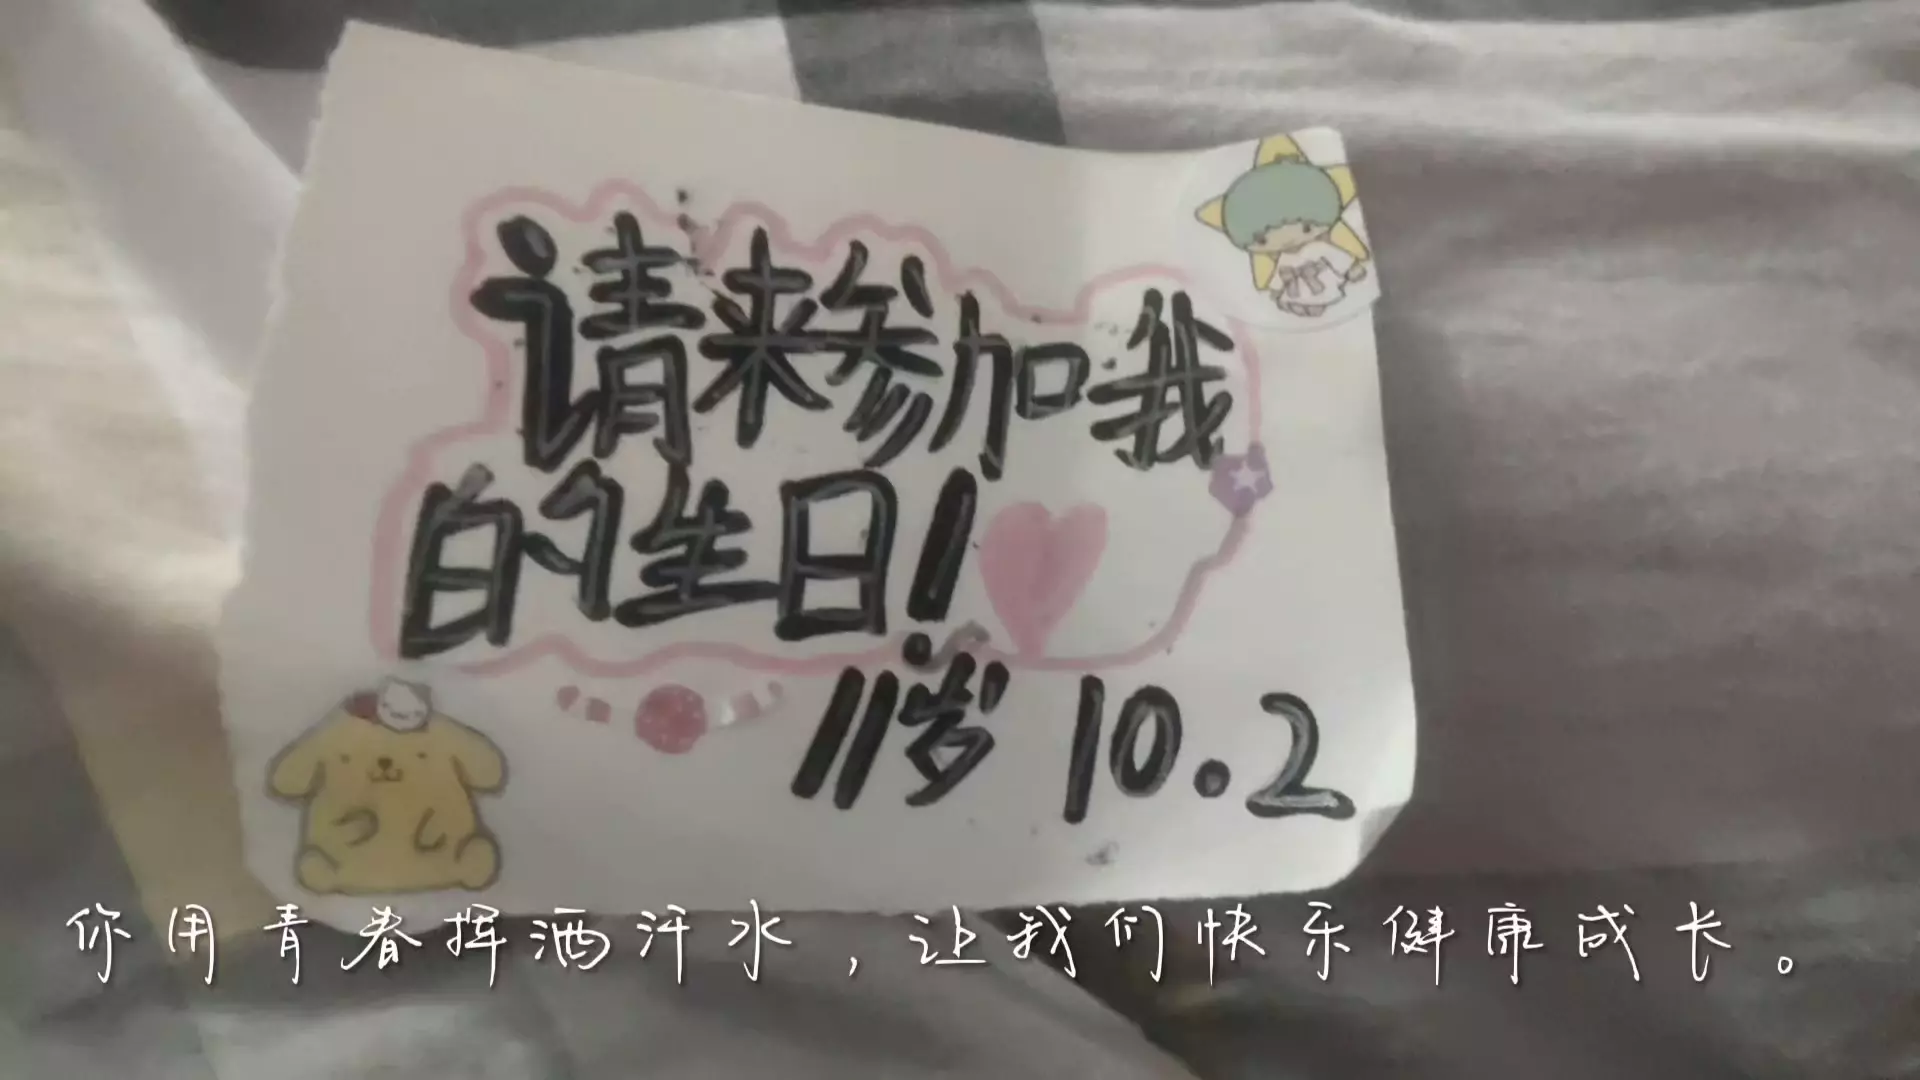 请来参加我
的生日！
11岁 10.2
你用青春挥洒汗水，让我们快乐健康成长。